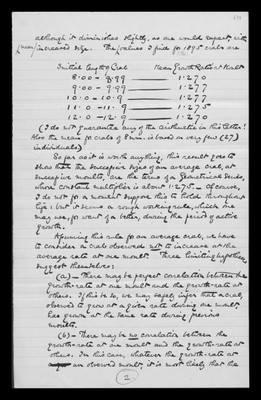 although it diminishes slightly, as one would expect, with
(mean) increased size. The values I find for 1895 crabs are
Initial length of Crab Mean Growth Ratio at Moult
8·00 - 8·99 1·270
9·00 - 9·99 1·277
10·0 - 10·9 1·277
11·0 - 11·9 1·275
12·0 - 12·9 1·270
(I do not guarantee any of the arithmetic in this letter!
Also the mean for crabs of 8 mm. is based on very few (27)
individuals)
So far as it is worth anything, this result goes to
show that the successive sizes of an average crab, at
successive moults, are the terms of a geometrical series,
whose constant multiplier is about 1·275 — Of course,
I do not for a moment suppose this to hold throughout
life: but it seems a rough working rule, which one
may use, for want of a better, during the period of active
growth.
Assuming this rule for an average crab, we have
to consider a crab observed not to increase at the
average rate at one moult. Three limiting hypotheses
suggest themselves:
(a) — There may be perfect correlation between the
growth-rate at one moult and the growth-rate at
others. If this be so, we may safely infer that a crab,
observed to grow at a given rate during one moult,
has grown at the same rate during previous
moults.
(b) — There may be no correlation between the
growth-rate at one moult and the growth-rate at
others. In this case, whatever the growth-rate at
an observed moult, it is most likely that the
2